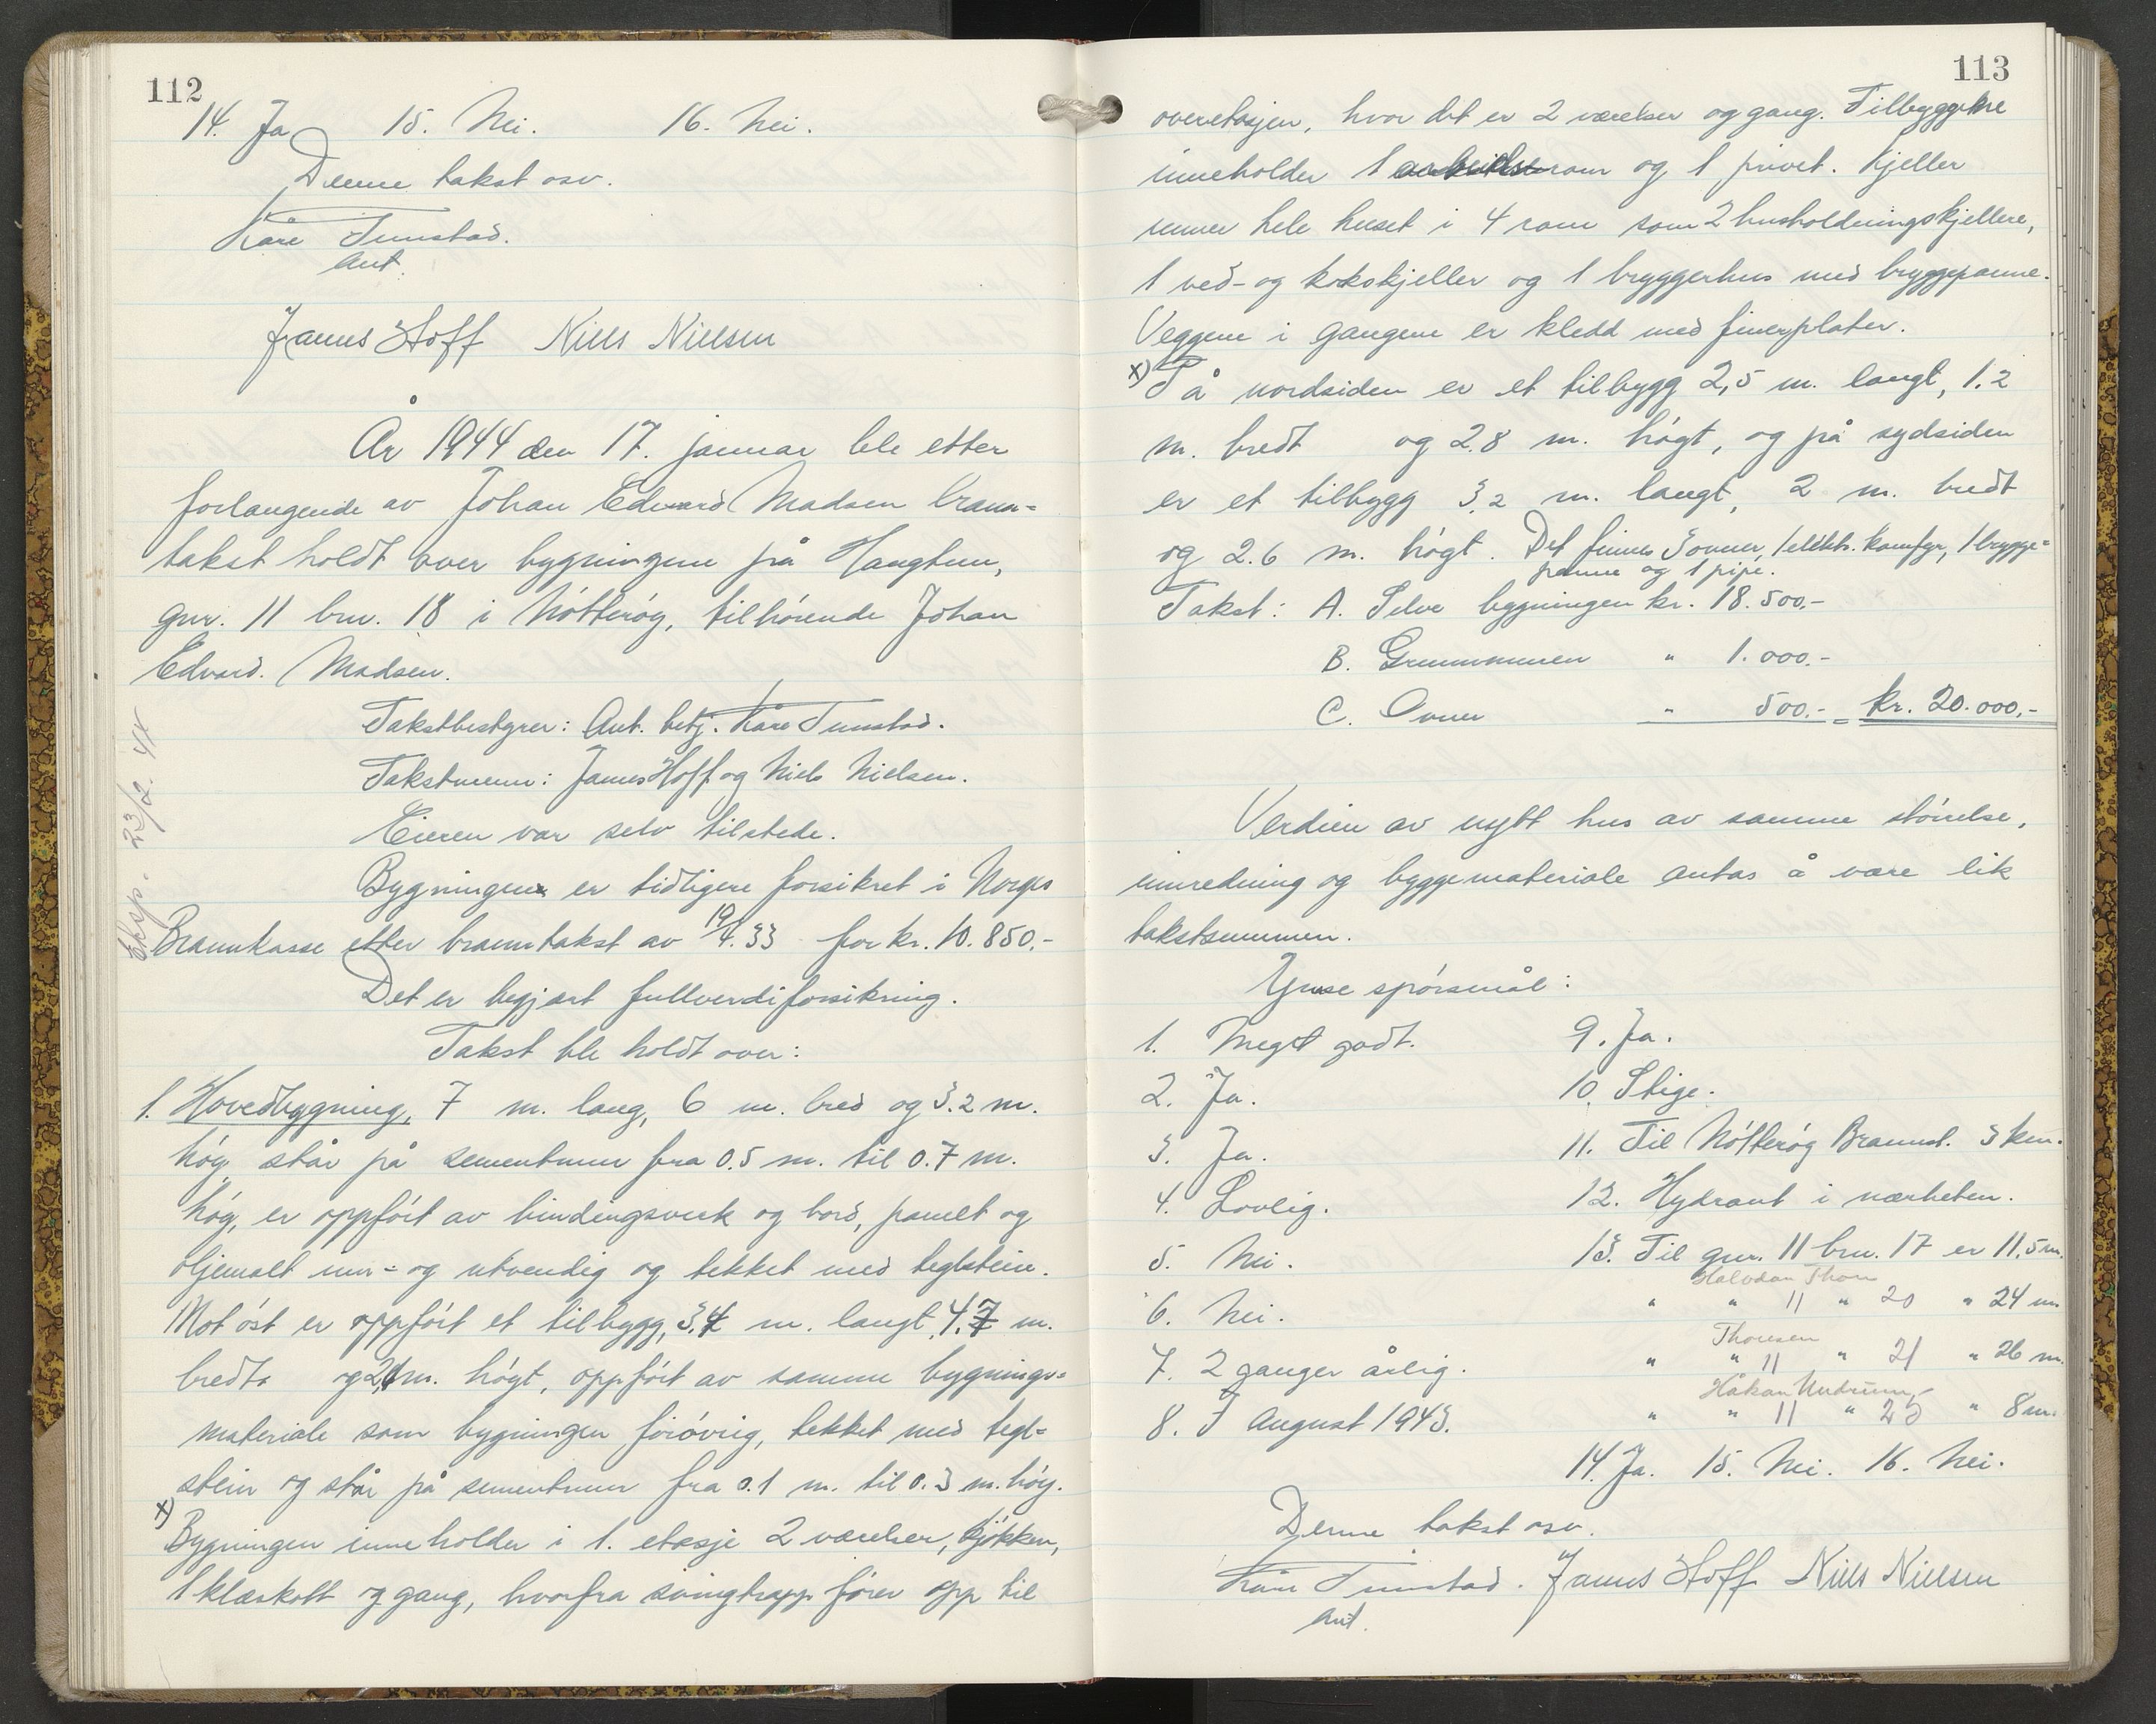 112
14. Ja 15. Nei. 16. Nei.
Denne takst osv.
Kåre Tunstad.
Aut.
James Hoff Niels Nielsen
År 1944 den 17. januar ble etter
forlangende av Johan Edvard Madsen brann-
takst holdt over bygningene på Haugtun,
gnr. 11 bnr. 18 i Nøtterøy, tilhørende Johan
Edvard Madsen.
Takstbestyrer: Aut. betj. Kåre Tunstad.
Takstmenn: James Hoff og Niels Nielsen.
Eieren var selv tilstede.
Bygningen er tidligere forsikret i Norges
Brannkasse etter branntakst av 19/4.33 for kr. 10.850,-
Det er begjært fullverdiforsikring.
Takst ble holdt over:
1. Hovedbygning, 7 m. lang, 6 m. bred og 3.2 m.
høy, står på sementmur fra 0.5 m. til 0.7 m.
høy, er oppført av bindingsverk og bord, panelt og
oljemalt inn- og utvendig og tekket med teglstein.
Mot øst er oppført et tilbygg, 3.4 m. langt, 4.7 m.
bredt og 2,1 m. høyt, oppført av samme bygnings-
materiale som bygningen forøvrig, tekket med tegl-
stein og står på sementmur fra 0.1 m. til 0.3 m. høy.
x) Bygningen inneholder i 1. etasje 2 værelser, kjøkken,
1 kleskott og gang, hvorfra svingtrapp fører opp til
Eksp. 23/2. 44
113
overetasjen, hvor det er 2 værelser og gang. Tilbyggene
inneholder 1 arbeidsrom og 1 privet. Kjeller
under hele huset i 4 rom som 2 husholdningskjellere,
1 ved- og kokskjeller og 1 bryggerhus med bryggepanne.
Veggene i gangene er kledd med finerplater.
x) På nordsiden er et tilbygg 2,5 m. langt, 1.2
m. bredt og 2.8 m. høyt, og på sydsiden
er et tilbygg 3,2 m. langt, 2 m. bredt
og 2.6 m. høyt. Det finnes 3 ovner, 1 elektr. komfyr, 1 brygge-
panne og 1 pipe.
Takst: A. Selve bygningen kr. 18.500,-
B. Grunnmuren " 1.000.-
C. Ovner " 500.- = kr. 20.000,-
Verdien av nytt hus av samme størrelse,
innredning og byggemateriale antas å være lik
takstsummen.
Ymse spørsmål:
1. Meget godt. 9. Ja.
2. Ja. 10. Stige.
3. Ja. 11. Til Nøtterøy Brannst. 3 km.
4. Lovlig. 12. Hydrant i nærheten.
5. Nei. 13. Til gnr. 11 bnr. 17 er 11,5 m.
Halvdan Thon
6. Nei. " " 11 " 20 " 24 m
Thoresen
7. 2 ganger årlig. " " 11 " 21 " 26 m.
Håkan Undrum,-
8. I August 1943. " " 11 " 25 " 8 m.
14. Ja. 15. Nei. 16. Nei.
Denne takst osv.
Kåre Tunstad. James Hoff Niels Nielsen
Aut.